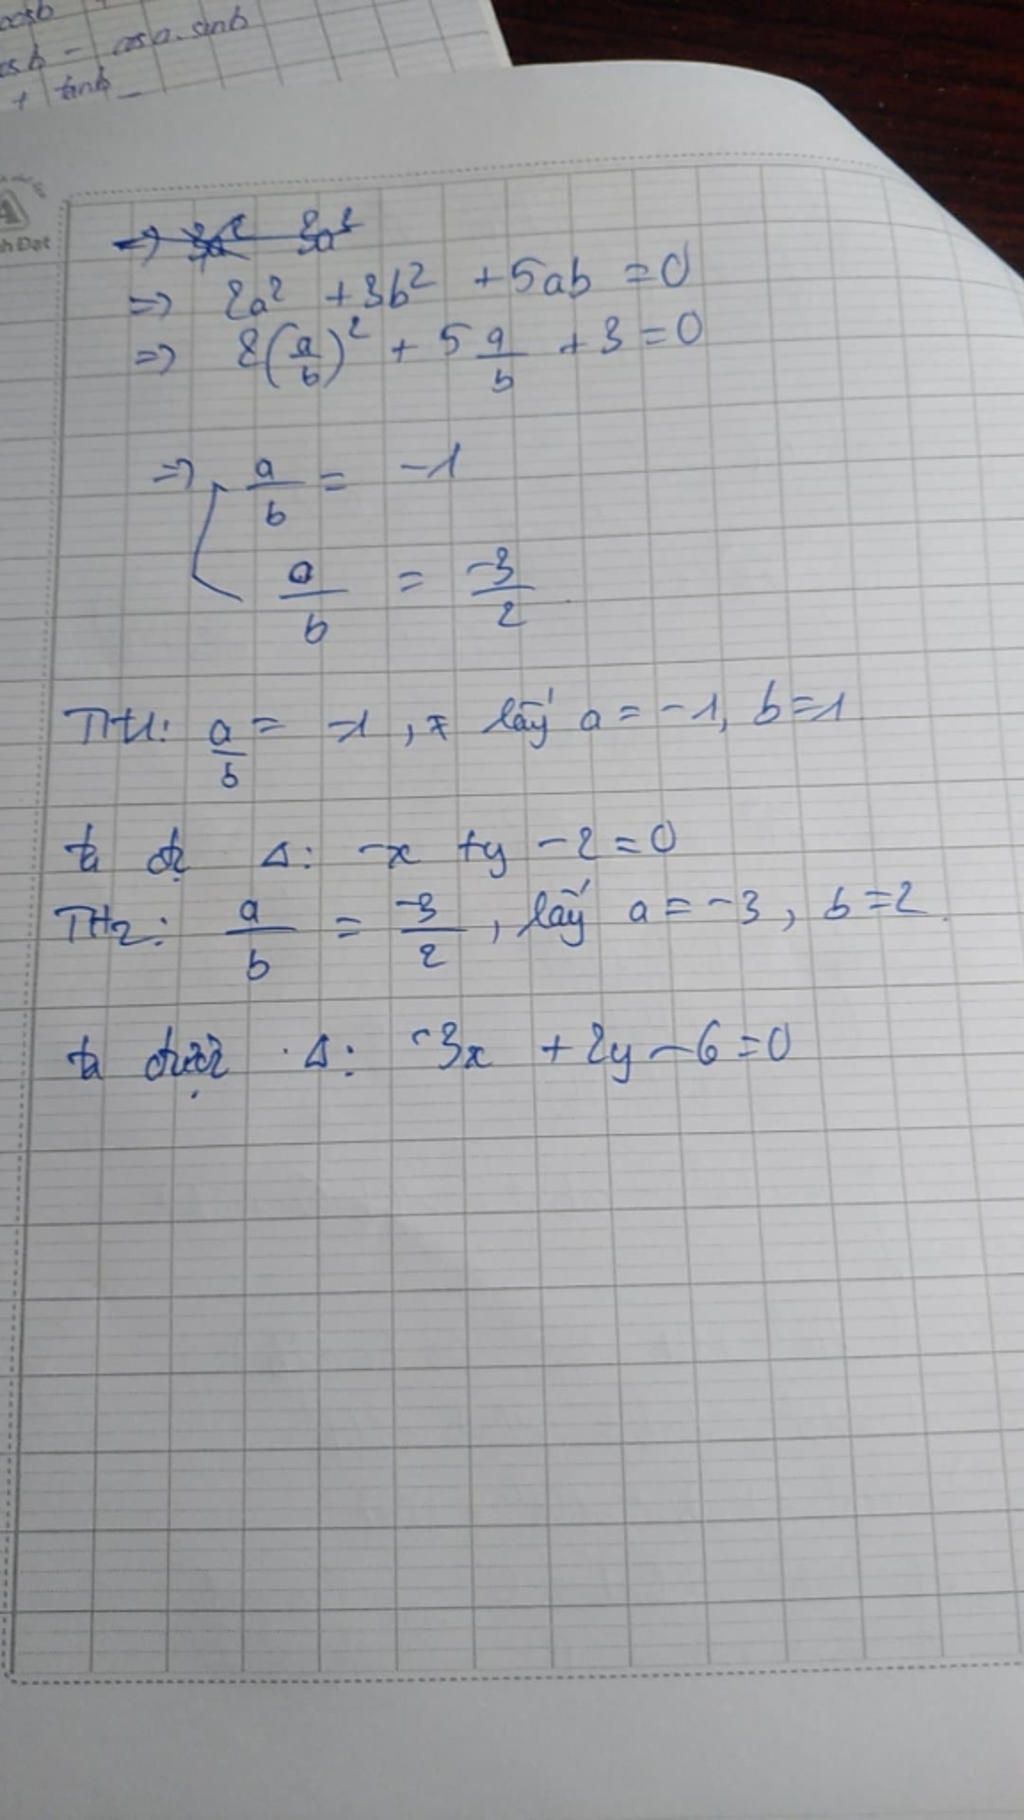 cosb
sb - cosa.sinb
+ tanb
h Đạt
=> 2a² + 3b² + 5ab = 0
=> 2(a/b)² + 5 a/b + 3 = 0
=> a/b = -1
a/b = -3/2
TH1: a/b = -1, lấy a = -1, b = 1
ta đc Δ: -x + y - 2 = 0
TH2: a/b = -3/2, lấy a = -3, b = 2.
ta được Δ: -3x + 2y - 6 = 0